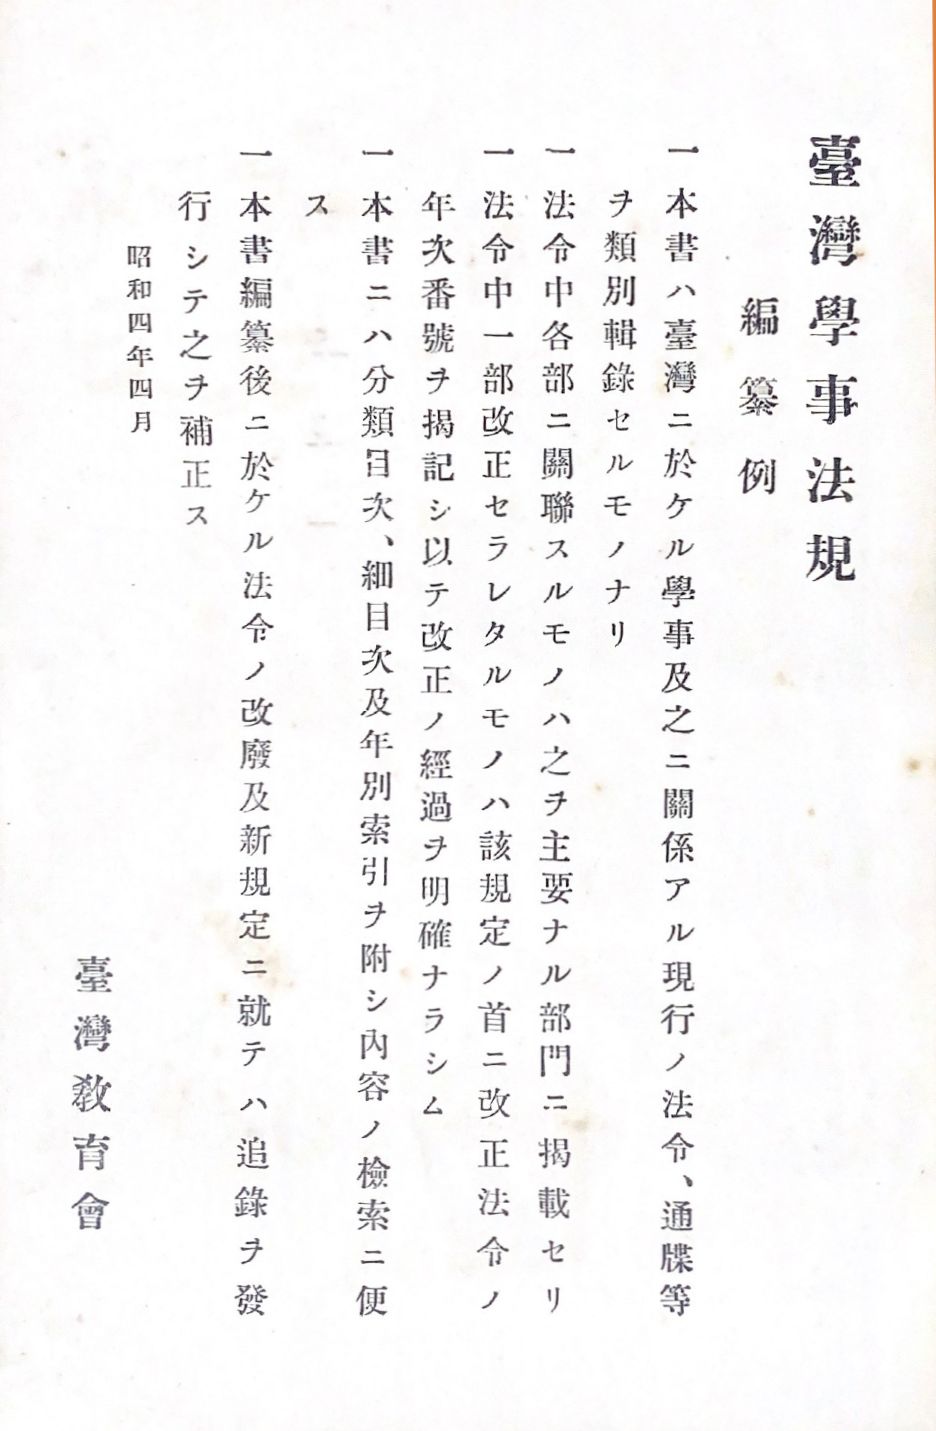 臺灣學事法規
編纂例
一本書ハ臺灣ニ於ケル學事及之ニ關係アル現行ノ法令、通牒等
ヲ類別輯錄セルモノナリ
一法令中各部ニ關聯スルモノハ之ヲ主要ナル部門ニ揭載セリ
一法令中一部改正セラレタルモノハ該規定ノ首ニ改正法令ノ
年次番號ヲ揭記シ以テ改正ノ經過ヲ明確ナラシム
一本書ニハ分類目次、細目次及年別索引ヲ附シ內容ノ檢索ニ便
ス
一本書編纂後ニ於ケル法令ノ改廢及新規定ニ就テハ追錄ヲ發
行シテ之ヲ補正ス
昭和四年四月
臺灣敎育會